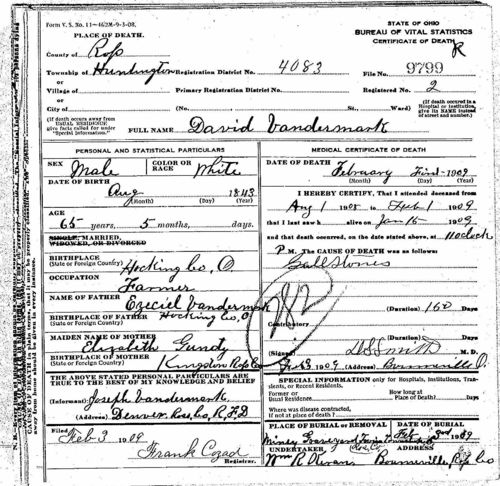 Form V. S. No. 11-462M-9-3-08.
PLACE OF DEATH.
County of Ross
Township of Huntington Registration District No. 4083
or Village of Primary Registration District No.
or City of (No. St.; Ward)
(If death occurs away from USUAL RESIDENCE give facts called for under "Special Information.")
STATE OF OHIO
BUREAU OF VITAL STATISTICS
CERTIFICATE OF DEATH
R
File No. 9799
Registered No. 2
(If death occurred in a Hospital or institution, give its NAME instead of street and number.)
FULL NAME David Vandermark
PERSONAL AND STATISTICAL PARTICULARS
SEX Male
COLOR OR RACE White
DATE OF BIRTH
Aug 1843
(Month) (Day) (Year)
AGE
65 years, 5 months, days.
SINGLE, MARRIED,
WIDOWED, OR DIVORCED
BIRTHPLACE
(State or Foreign Country) Hocking Co, O.
OCCUPATION
Farmer
NAME OF FATHER Ezeciel Vandermark
BIRTHPLACE OF FATHER
(State or Foreign Country) Hocking Co, O
MAIDEN NAME OF MOTHER
Elizabeth Gundy
BIRTHPLACE OF MOTHER
(State or Foreign Country) Kingston Ross Co
THE ABOVE STATED PERSONAL PARTICULARS ARE TRUE TO THE BEST OF MY KNOWLEDGE AND BELIEF
Joseph Vandermark
(Address) Denver Ross Co, R.F.D
Filed Feb 3 1909
Frank Cozad
Registrar.
MEDICAL CERTIFICATE OF DEATH
DATE OF DEATH
February First 1909
(Month) (Day) (Year)
I HEREBY CERTIFY, That I attended deceased from
Aug 1 1908 to Feb 1 1909
that I last saw h alive on Jan 15 1909
and that death occurred, on the date stated above, at 11 oclock
P M. The CAUSE OF DEATH was as follows:
Gall Stones
(Duration) 160 DAYS
Contributory
(Duration) DAYS
(Signed) M. D.
Feb 3 1909 (Address) Bourneville O.
SPECIAL INFORMATION only for Hospitals, Institutions, Transients, or Recent Residents.
Former or Usual Residence
How long at Place of Death? Days
Where was disease contracted,
if not at place of death?
PLACE OF BURIAL OR REMOVAL
DATE OF BURIAL
Feb 3rd 1909
UNDERTAKER
ADDRESS
Wm R
Bourneville, Ross Co